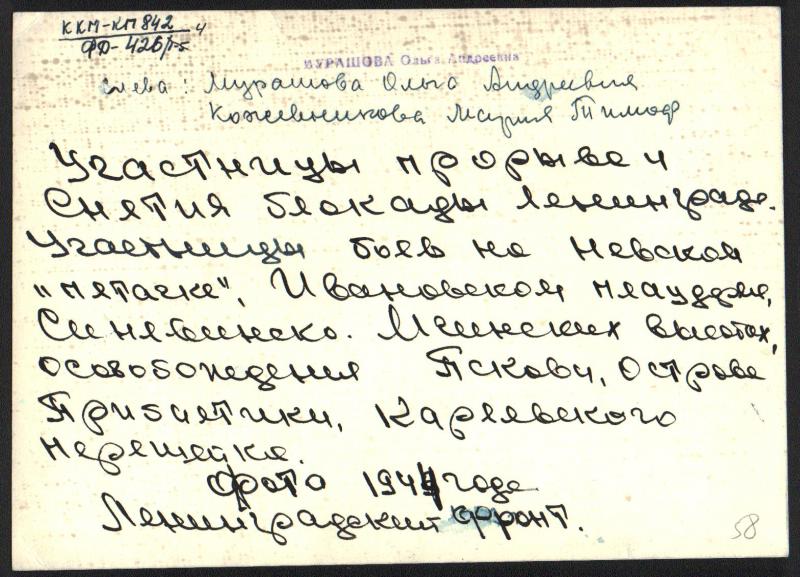 ККМ-КП 842
4
ФД-426/1-5
МУРАШОВА Ольга Андреевна
слева: Мурашова Ольга Андреевна
Кожевникова Мария Тимоф
Участницы прорыва и
Снятия блокады Ленинграда.
Участницы боев на Невском
"пятачке", Ивановском плацдарме,
Синявинско. Мгинских высотах,
освобождения Пскова, Острова
Прибалтики, Карельского
перешейка.
фото 1944 года
Ленинградский фронт.
58